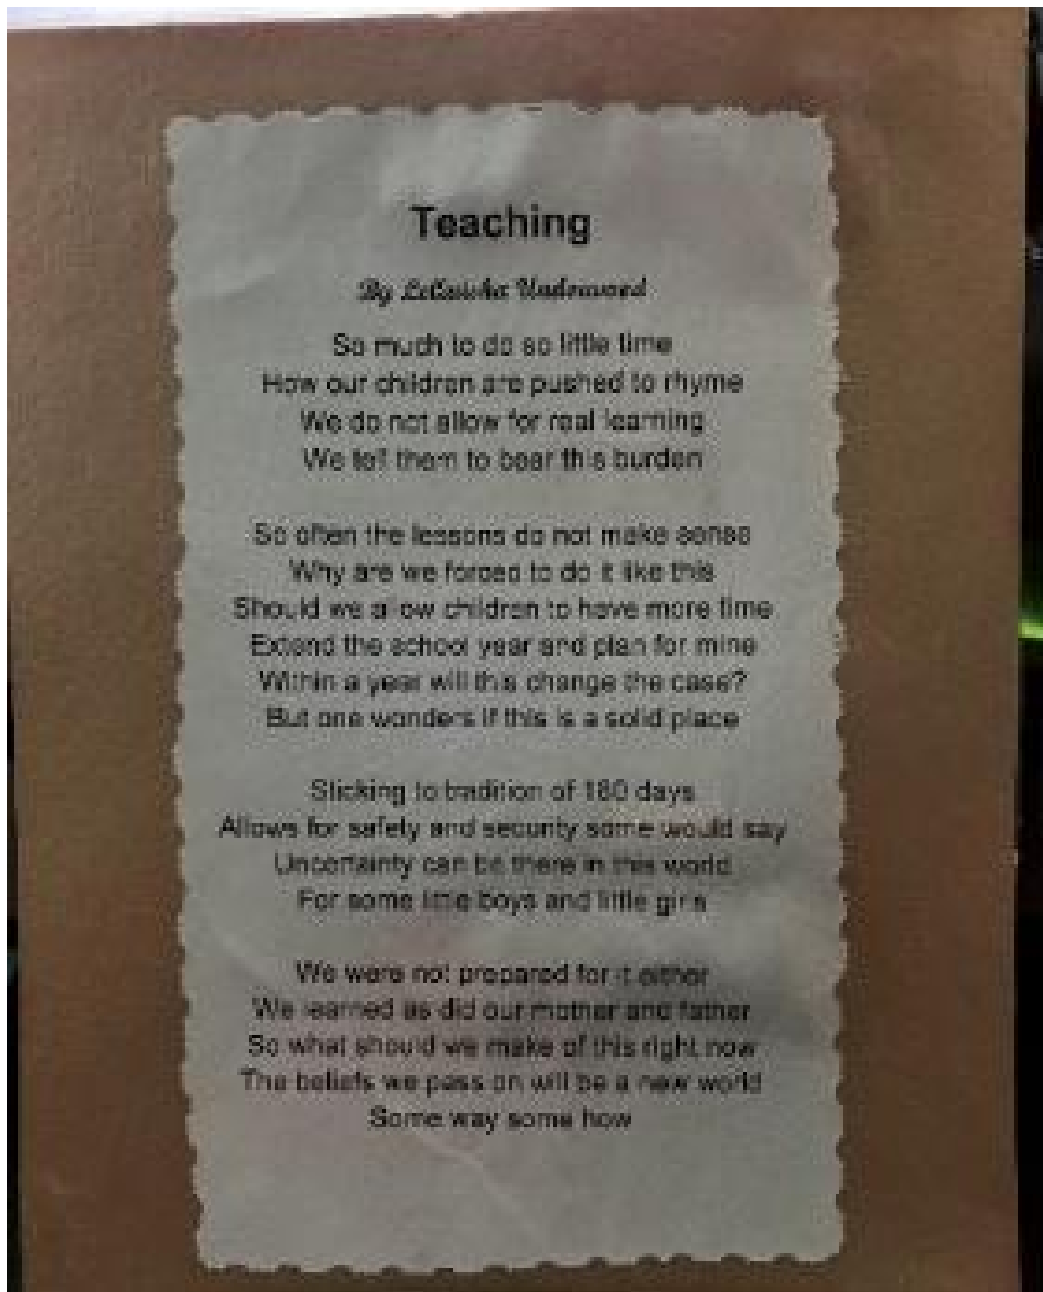 Teaching
By Underwood
So much to do so little time
How our children are pushed to rhyme
We do not allow for real learning
We tell them to bear this burden
So often the lessons do not make sense
Why are we forced to do it like this
Should we allow children to have more time
Extend the school year and plan for mine
Within a year will this change the case?
But one wonders if this is a solid place
Sticking to tradition of 180 days
Allows for safety and security some would say
Uncertainty can be there in this world
For some little boys and little girls
We were not prepared for it either
We learned as did our mother and father
So what should we make of this right now
The beliefs we pass on will be a new world
Some way some how